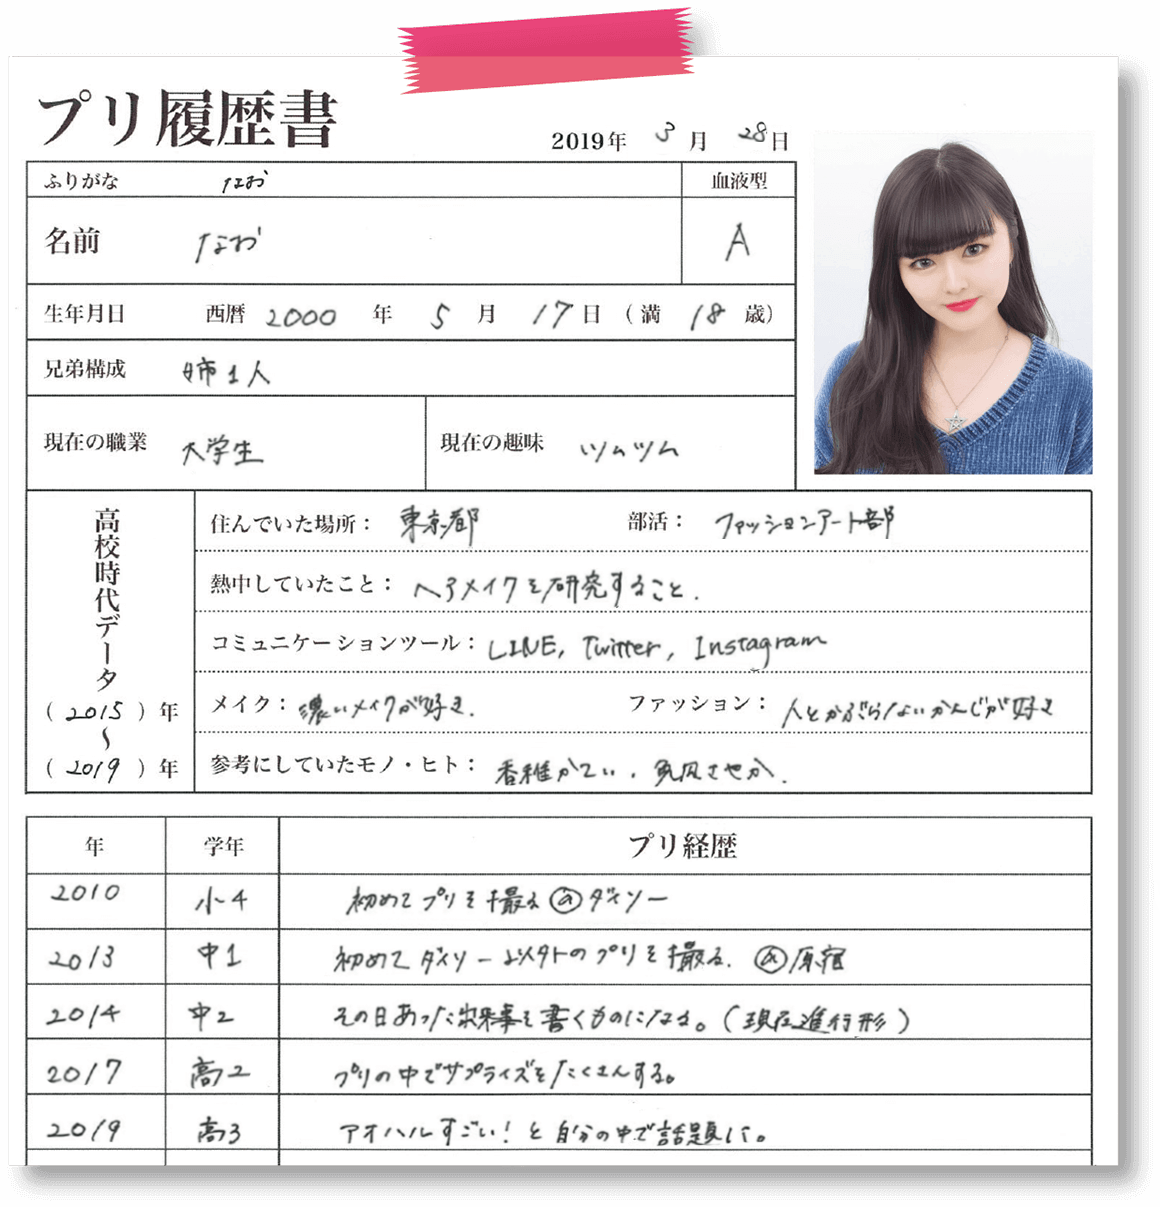 プリ履歴書
2019年 3月 28日
ふりがな なお 血液型
名前 なお A
生年月日 西暦 2000 年 5 月 17日 (満 18 歳)
兄弟構成 姉1人
現在の職業 大学生 現在の趣味 ツムツム
高校時代データ
(2015)年
〜
(2019)年
住んでいた場所： 東京都 部活： ファッションアート部
熱中していたこと： ヘアメイクを研究すること.
コミュニケーションツール： LINE, Twitter, Instagram
メイク： 濃いメイクが好き. ファッション： 人とかぶらないかんじが好き
参考にしていたモノ・ヒト： 香椎かてぃ.
年 学年 プリ経歴
2010 小4 初めてプリを撮る@ダイソー
2013 中1 初めてダイソー以外のプリを撮る. @原宿
2014 中2 その日あった出来事を書くものになる。(現在進行形)
2017 高2 プリの中でサプライズをたくさんする。
2019 高3 アオハルすごい!と自分の中で話題に。